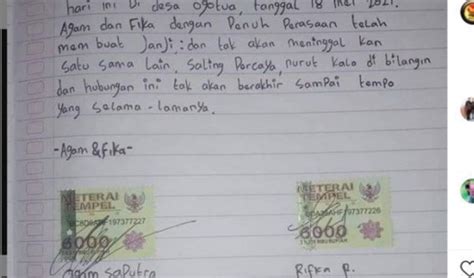 hari ini Di desa ogotua, tanggal 18 Mei 2021.
Agam dan Fika dengan Penuh Perasaan telah
mem buat Janji: dan tak akan meninggal kan
satu sama lain, Saling Percaya, nurut kalo di bilangin
dan hubungan ini tak akan berakhir sampai tempo
yang selama-lamanya.
-Agam & Fika-
METERAI TEMPEL
METERAI TEMPEL
197377227
197377226
6000
6000
Agam Saputra
Rifka P.